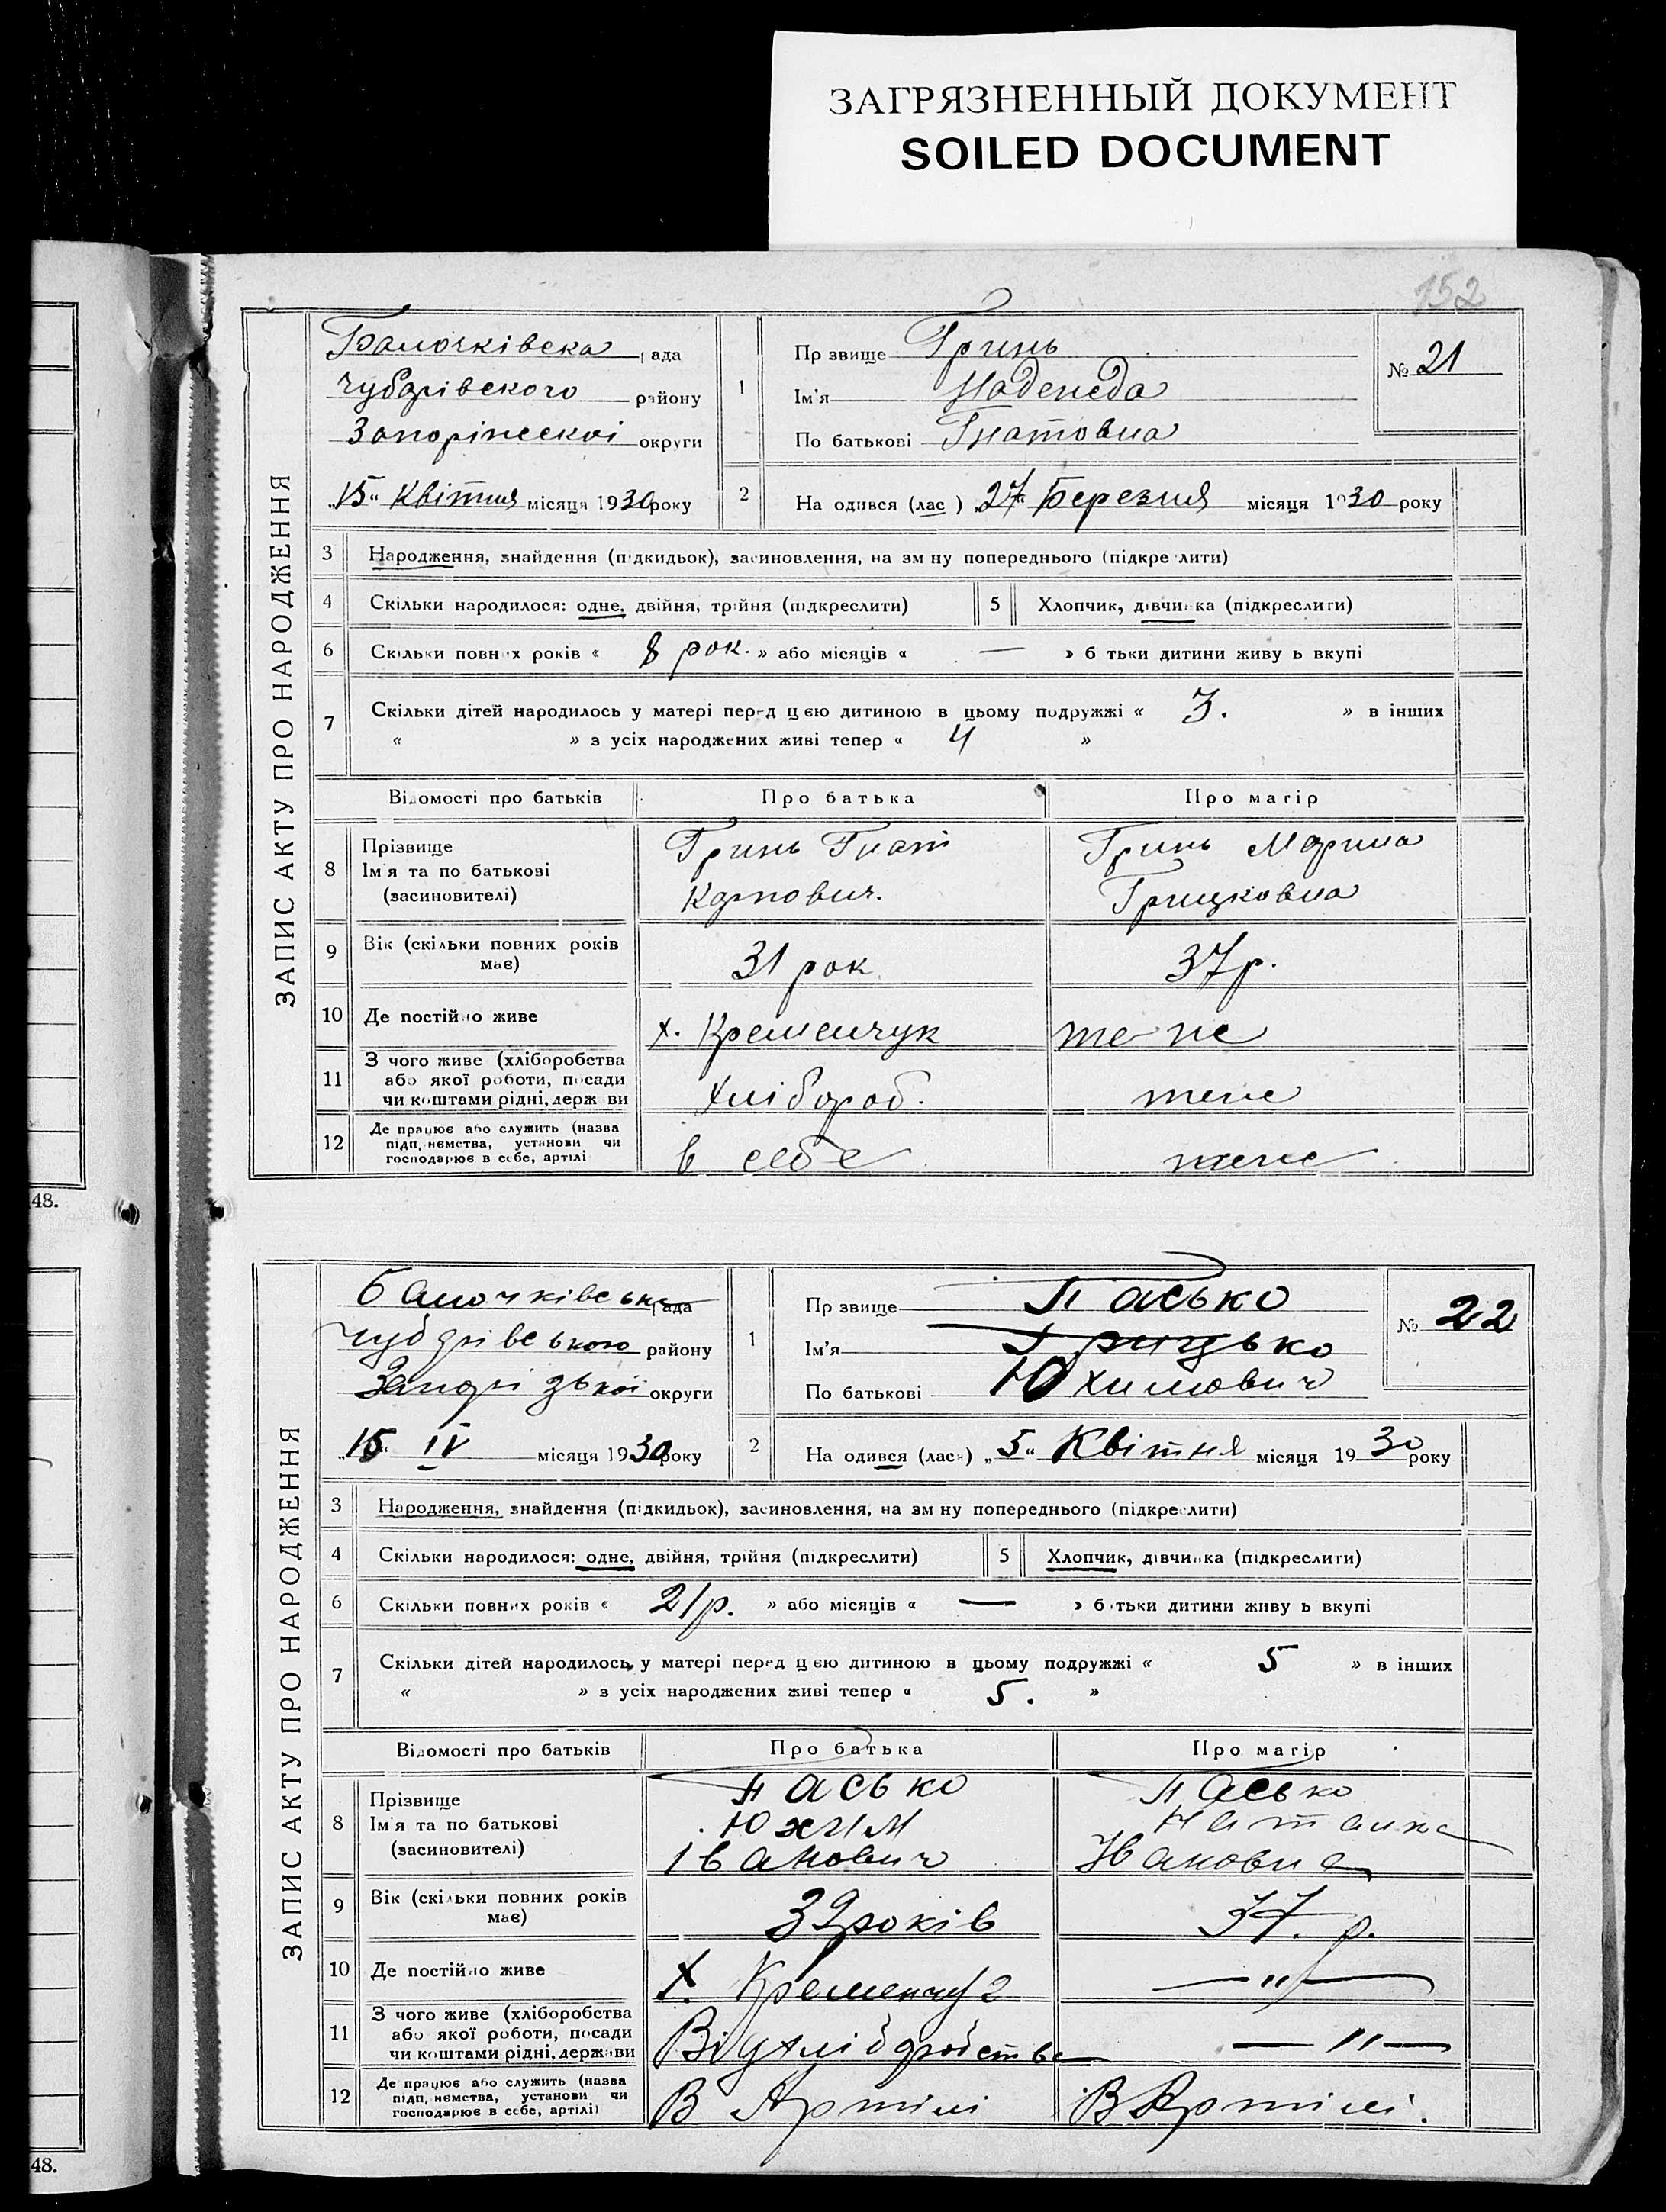 ЗАГРЯЗНЕННЫЙ ДОКУМЕНТ
SOILED DOCUMENT
152
ЗАПИС АКТУ ПРО НАРОДЖЕННЯ
Балочківська рада
Чубарівського району
Запоріжської округи
"15" Квітня місяця 1930 року
№ 21
1 Прізвище Гринь
Ім'я Надежда
По батькові Гнатовна
2 На одився (лас ) "27" Березня місяця 1930 року
3 Народження, знайдення (підкидьок), засиновлення, на зм ну попереднього (підкре лити)
4 Скільки народилося: одне, двійня, трійня (підкреслити) 5 Хлопчик, дівчинка (підкреслити)
6 Скільки повних років « 8 рок. » або місяців « — » б тьки дитини живу ь вкупі
7 Скільки дітей народилось у матері перед цією дитиною в цьому подружжі « 3. » в інших
« » з усіх народжених живі тепер « 4 »
Відомості про батьків Про батька Про матір
8 Прізвище Ім'я та по батькові (засиновителі) Гринь Гнат Карпович. Гринь Марина Грицковна
9 Вік (скільки повних років має) 31 рок 37 р.
10 Де постійно живе х. Кременчук теж
11 З чого живе (хліборобства або якої роботи, посади чи коштами рідні, держ ви Хлібороб. теже
12 Де працює або служить (назва підп, ємства, установи чи господарює в себе, артілі в себе теже
48.
ЗАПИС АКТУ ПРО НАРОДЖЕННЯ
Балочківська рада
Чубарівського району
Запорізької округи
"15" IV місяця 1930 року
№ 22
1 Пр звище Пасько
Ім'я Грицько
По батькові Юхимович
2 На одився (лась) "5" Квітня місяця 1930 року
3 Народження, знайдення (підкидьок), засиновлення, на зм ну попереднього (підкре лити)
4 Скільки народилося: одне, двійня, трійня (підкреслити) 5 Хлопчик, дівчинка (підкреслити)
6 Скільки повних років « 21 р. » або місяців « — » б тьки дитини живу ь вкупі
7 Скільки дітей народилось у матері перед цією дитиною в цьому подружжі « 5 » в інших
« » з усіх народжених живі тепер « 5. »
Відомості про батьків Про батька Про матір
8 Прізвище Ім'я та по батькові (засиновителі) Пасько Юхим Іванович Пасько Наталка Івановна
9 Вік (скільки повних років має) 39 років 37. р.
10 Де постійно живе Х. Кременчуг —"—
11 З чого живе (хліборобства або якої роботи, посади чи коштами рідні, держави Від хліборобства —"—
12 Де працює або служить (назва підп, ємства, установи чи господарює в себе, артілі) В Артілі В Артілі.
48.